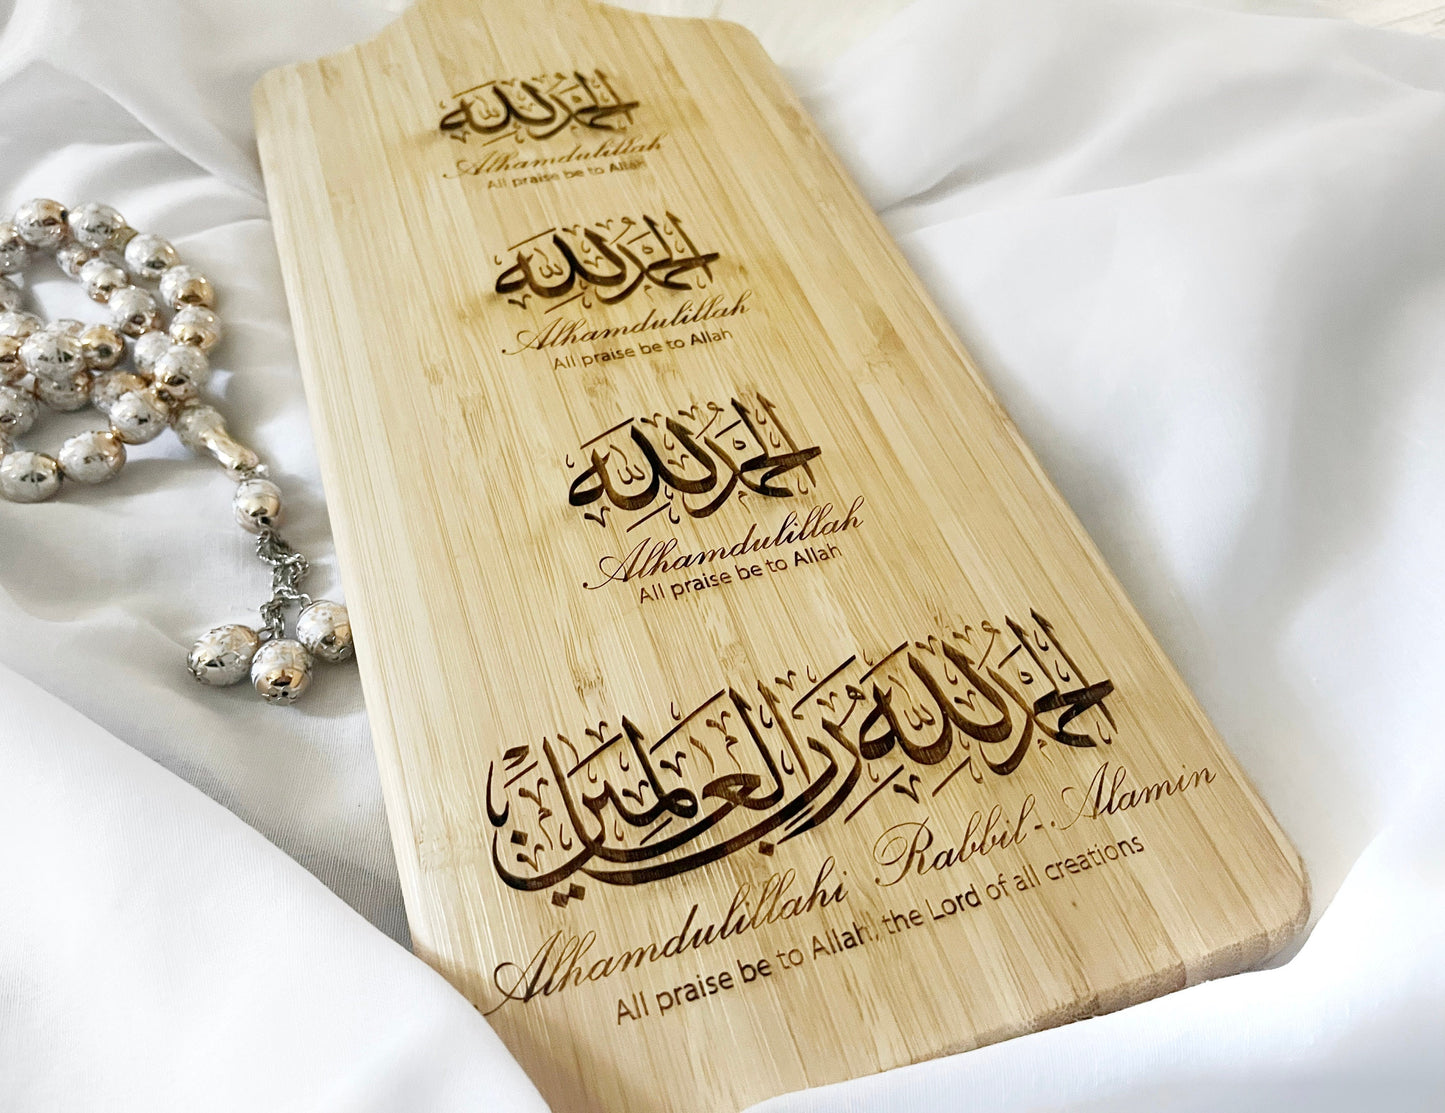 الحمد لله
Alhamdulillah
All praise be to Allah
الحمد لله
Alhamdulillah
All praise be to Allah
الحمد لله
Alhamdulillah
All praise be to Allah
الحمد لله رب العالمين
Alhamdulillahi Rabbil-Alamin
All praise be to Allah, the Lord of all creations